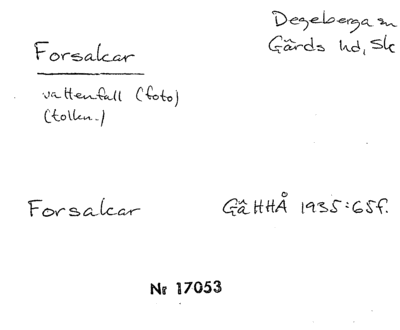 Degeberga sn
Gärds hd, Sk
Forsakar
vattenfall (foto)
(tolkn.)
Forsakar
GäHHÅ 1935:65f.
Nr 17053